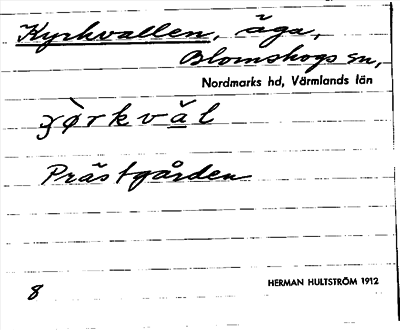 Kyrkvallen, äga,
Blomskogs sn,
Nordmarks hd, Värmlands län
ʒø̀rkvål
Prästgården
8
HERMAN HULTSTRÖM 1912